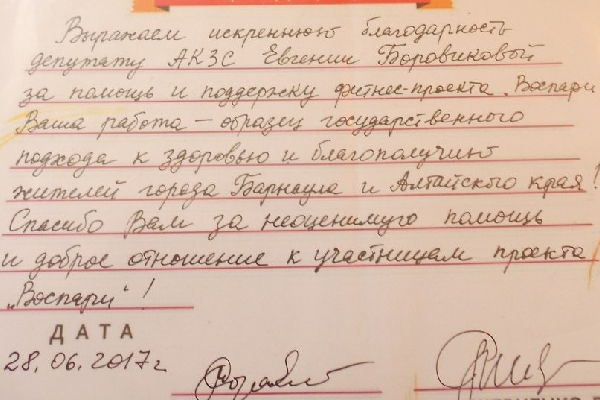 Выражаем искреннюю благодарность
депутату АКЗС Евгении Боровиковой
за помощь и поддержку фитнес-проекта „Воспари“
Ваша работа – образец государственного
подхода к здоровью и благополучию
жителей города Барнаула и Алтайского края!
Спасибо Вам за неоценимую помощь
и доброе отношение к участницам проекта
„Воспари“!
ДАТА
28.06.2017г